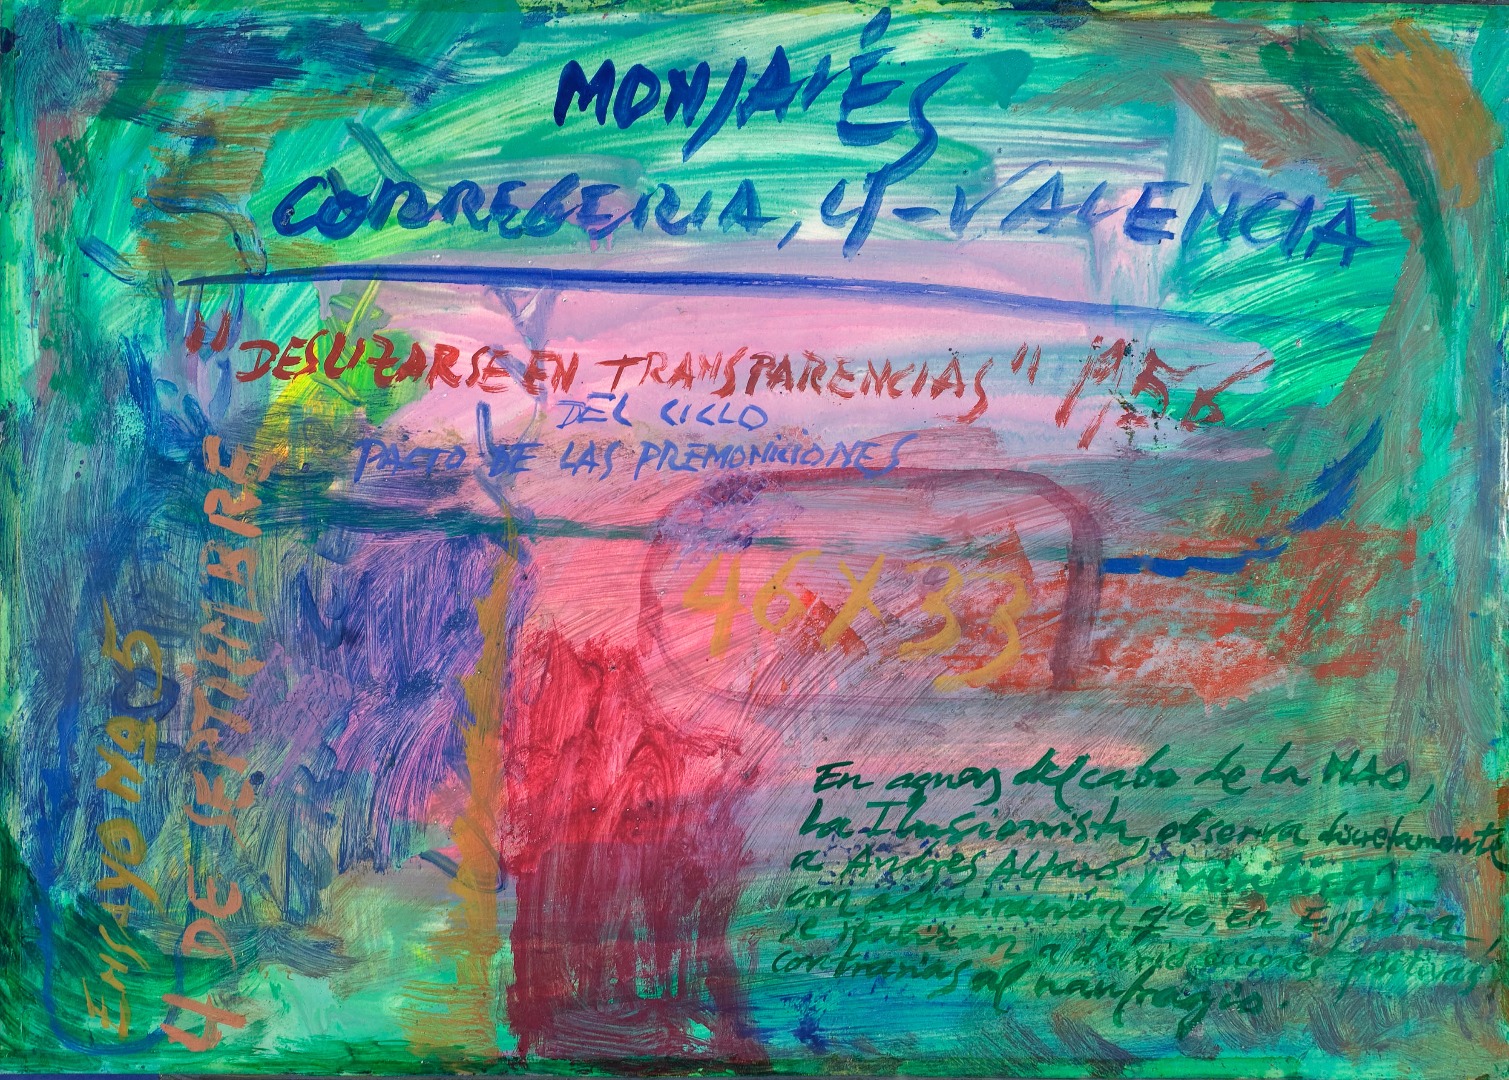 MONJALÉS
CORREGERIA, 4 - VALENCIA
"DESLIZARSE EN TRANSPARENCIAS"
DEL CICLO
PACTO DE LAS PREMONICIONES
46 X 33
ENSAYO Nº 5
4 DE SEPTIEMBRE
En aguas del cabo de la NAO,
La Ilusionista, observa discretamente
a Andrés Alfaro, y verifica
con admiración que, en España,
se realizan a diario acciones positivas
contrarias al naufragio.